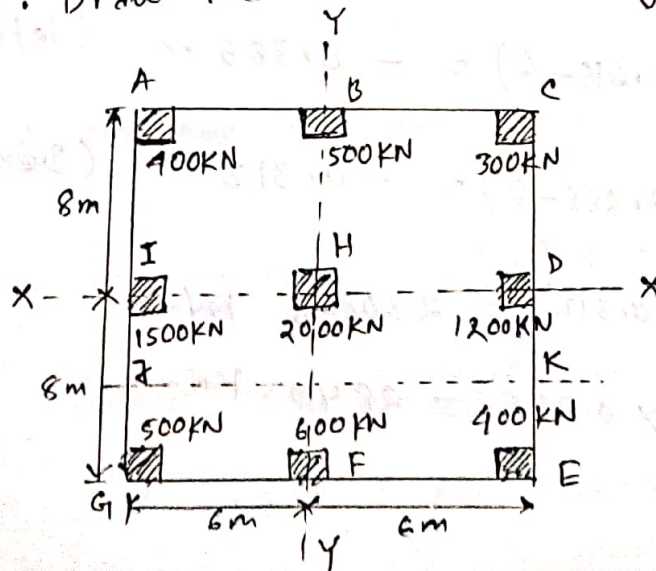 Y
A B C
400KN 500KN 300KN
8m
I H D
X X
1500KN 2000KN 1200KN
K
8m
500KN 600KN 400KN
G F E
6m 6m
Y